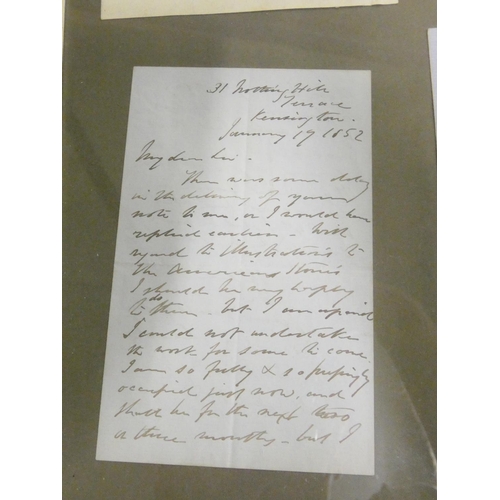 31 Notting Hill
Terrace
Kensington.
January 19 1852
My dear Sir.
There was some delay
in the delivery of your
note to me, or I would have
replied earlier. With
regard to illustrations to
the American Stories
I should be very happy
to do them - but I am afraid
I could not undertake
the work for some time to come
I am so fully & so
occupied just now, and
shall be for the next two
or three months - but I